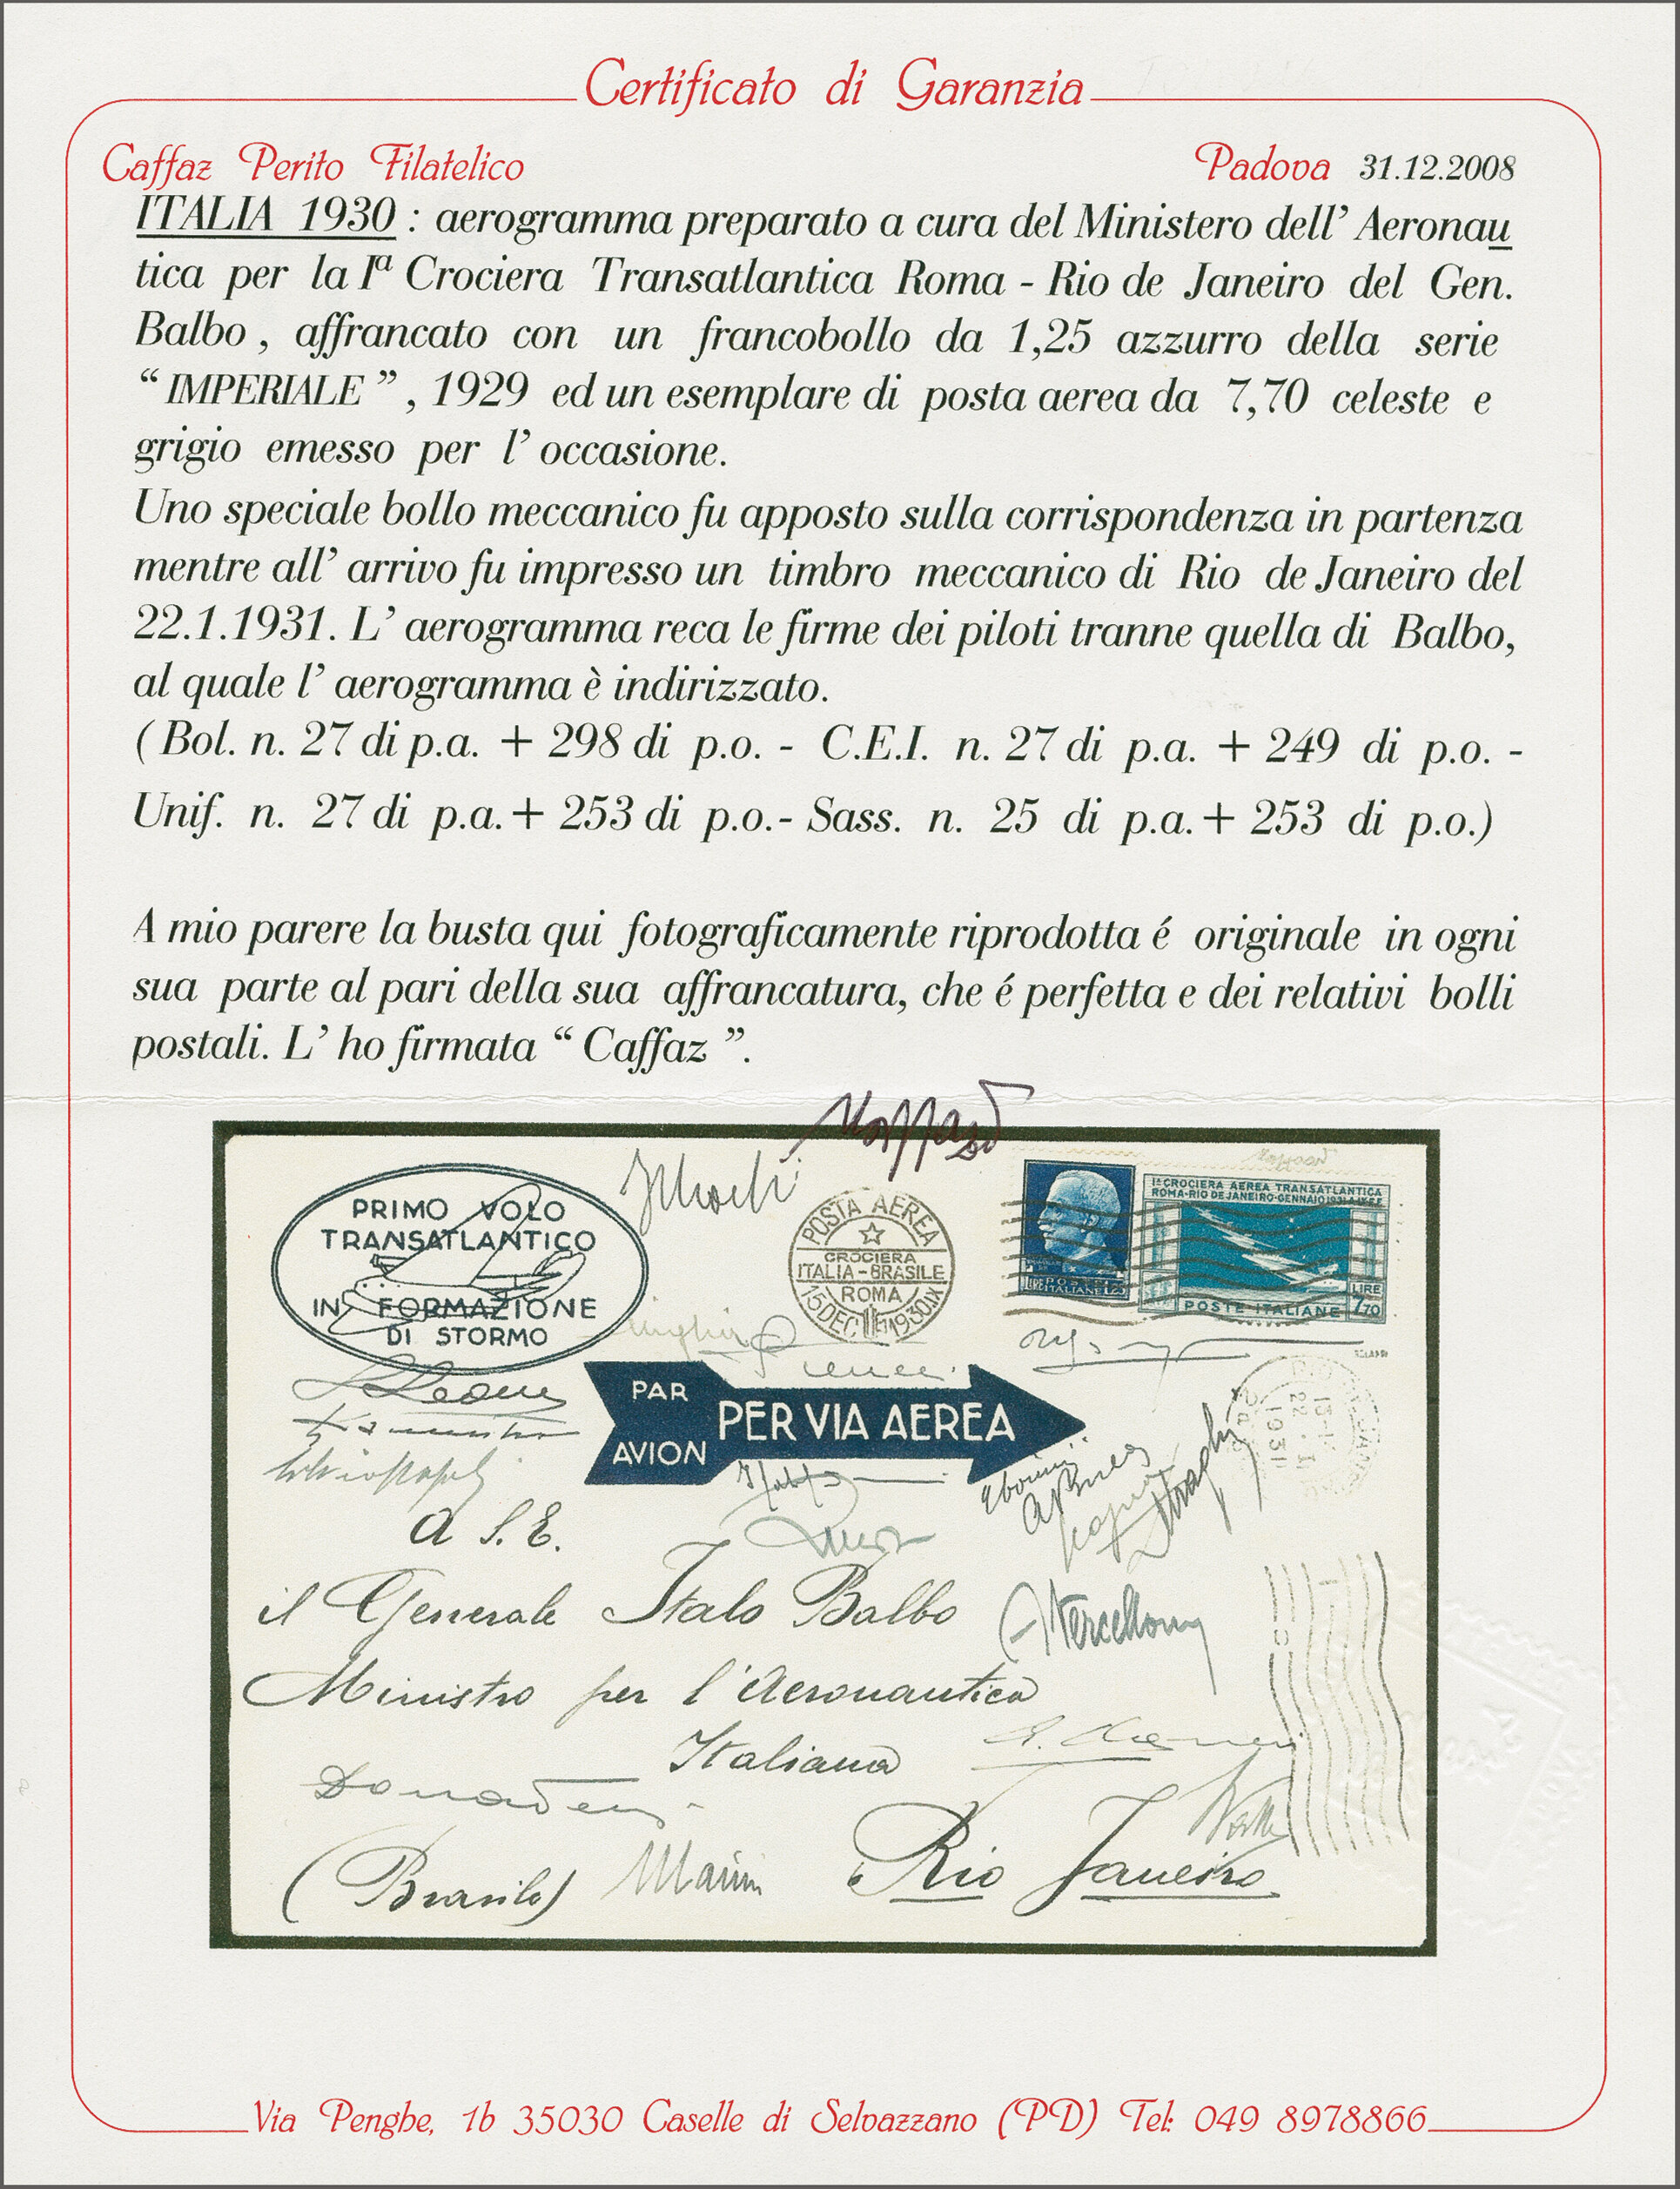 Certificato di Garanzia
Caffaz Perito Filatelico
Padova 31.12.2008
ITALIA 1930 : aerogramma preparato a cura del Ministero dell' Aeronau
tica per la Iª Crociera Transatlantica Roma - Rio de Janeiro del Gen.
Balbo , affrancato con un francobollo da 1,25 azzurro della serie
“ IMPERIALE ” , 1929 ed un esemplare di posta aerea da 7,70 celeste e
grigio emesso per l' occasione.
Uno speciale bollo meccanico fu apposto sulla corrispondenza in partenza
mentre all' arrivo fu impresso un timbro meccanico di Rio de Janeiro del
22.1.1931. L' aerogramma reca le firme dei piloti tranne quella di Balbo,
al quale l' aerogramma è indirizzato.
( Bol. n. 27 di p.a. + 298 di p.o. - C.E.I. n. 27 di p.a. + 249 di p.o. -
Unif. n. 27 di p.a. + 253 di p.o.- Sass. n. 25 di p.a. + 253 di p.o.)
A mio parere la busta qui fotograficamente riprodotta é originale in ogni
sua parte al pari della sua affrancatura, che é perfetta e dei relativi bolli
postali. L' ho firmata “ Caffaz ”.
PRIMO VOLO
TRANSATLANTICO
IN FORMAZIONE
DI STORMO
POSTA AEREA
CROCIERA
ITALIA - BRASILE
ROMA
15 DEC 1930 IX
1ª CROCIERA AEREA TRANSATLANTICA
ROMA-RIO DE JANEIRO-GENNAIO 1931
LIRE
7,70
POSTE ITALIANE
PAR
AVION
PER VIA AEREA
22
1931
A S. E.
il Generale Italo Balbo
Ministro per l'Aeronautica
Italiana
Donadelli
Marini
(Brasile)
Rio Janeiro
Via Penghe, 1b 35030 Caselle di Selvazzano (PD) Tel: 049 8978866